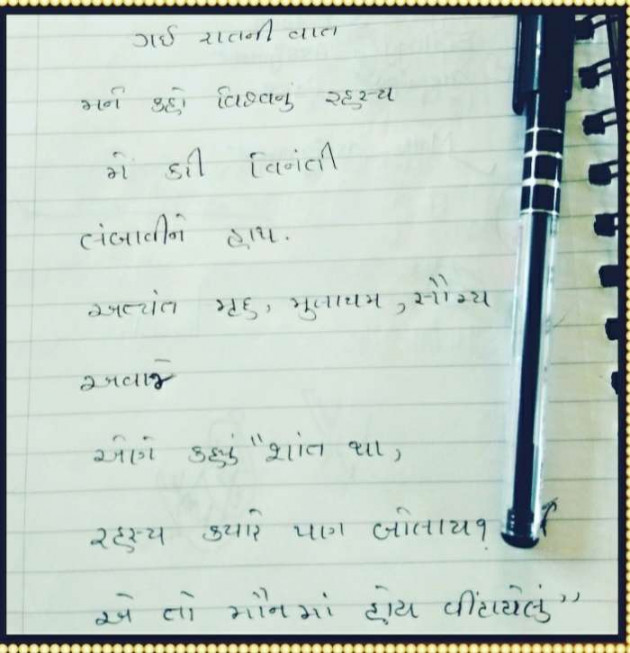 ગઈ રાતની વાત
મને કહો વિશ્વનું રહસ્ય
મેં કરી વિનંતી
લંબાવીને હાથ.
અત્યંત મૃદુ, મુલાયમ, સૌમ્ય
અવાજે
એણે કહ્યું "શાંત થા,
રહસ્ય ક્યારે પણ બોલાય?
એ તો મૌનમાં હોય વીંટાયેલું"